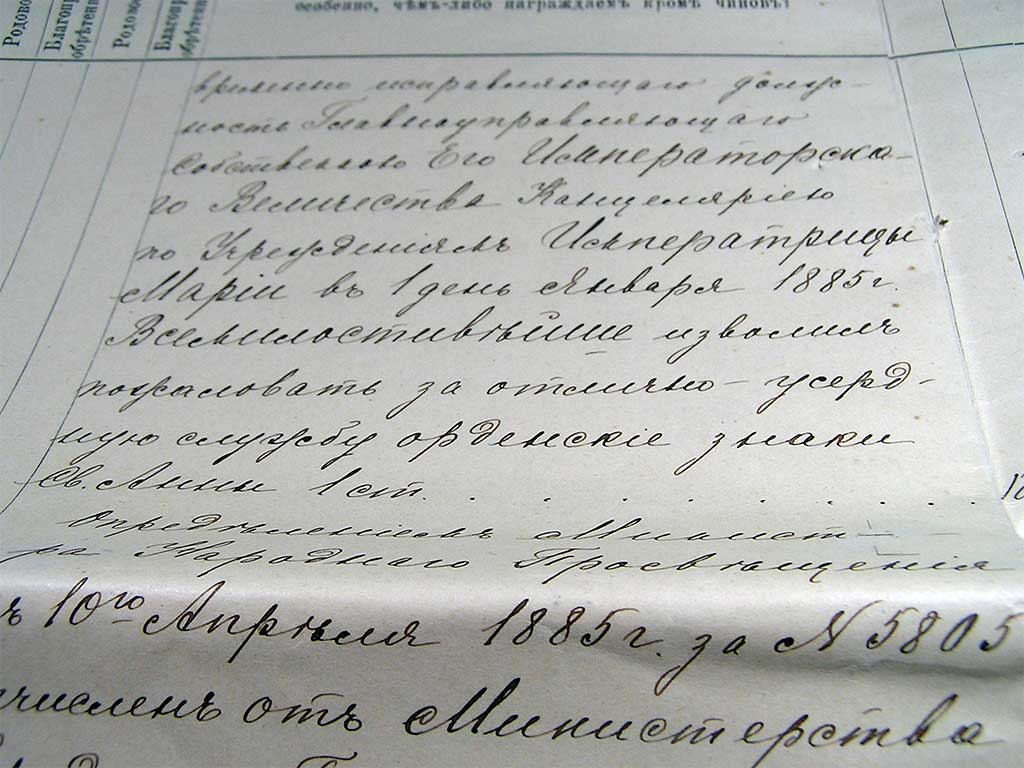 Родово
Благопр
обрѣтен
Родово
Благ
обрѣте
особенно, чѣмъ-либо награждаемъ кромѣ чиновъ?
временно исправляющаго долж-
ность Главноуправляющаго
Собственною Его Императорска-
го Величества Канцеляріею
по Учрежденіямъ Императрицы
Маріи въ 1 день Января 1885 г.
Всемилостивѣйше изволилъ
пожаловать за отлично-усерд-
ную службу орденскіе знаки
Св. Анны 1 ст. . . . . . . . .
Опредѣленіемъ Минист-
ра Народнаго Просвѣщенія
ъ 10го Апрѣля 1885 г. за N 5805
численъ отъ Министерства